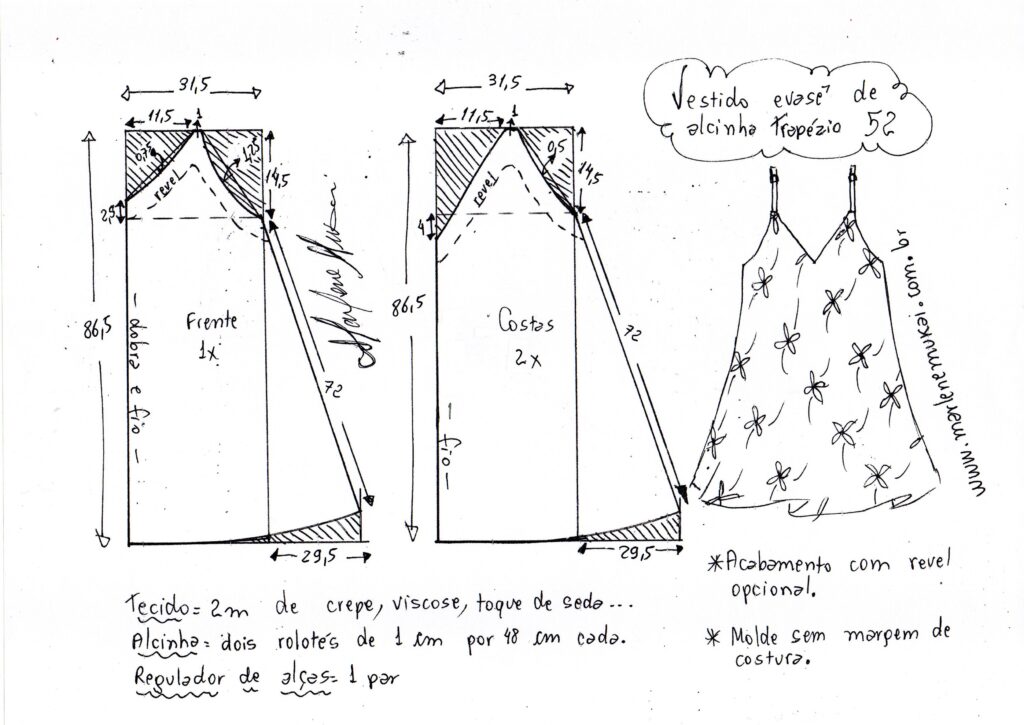 Vestido evasê de
alcinha trapézio 52
31,5
11,5
1
0,75
1,25
revel
14,5
2,5
86,5
Frente
1x
72
dobra e fio
29,5
Marlene Mukai
31,5
11,5
1
0,5
revel
14,5
4
86,5
Costas
2x
72
fio
29,5
www.marlenemukai.com.br
*Acabamento com revel
opcional.
* Molde sem margem de
costura.
Tecido= 2m de crepe, viscose, toque de seda...
Alcinha= dois rolotés de 1 cm por 48 cm cada.
Regulador de alças= 1 par